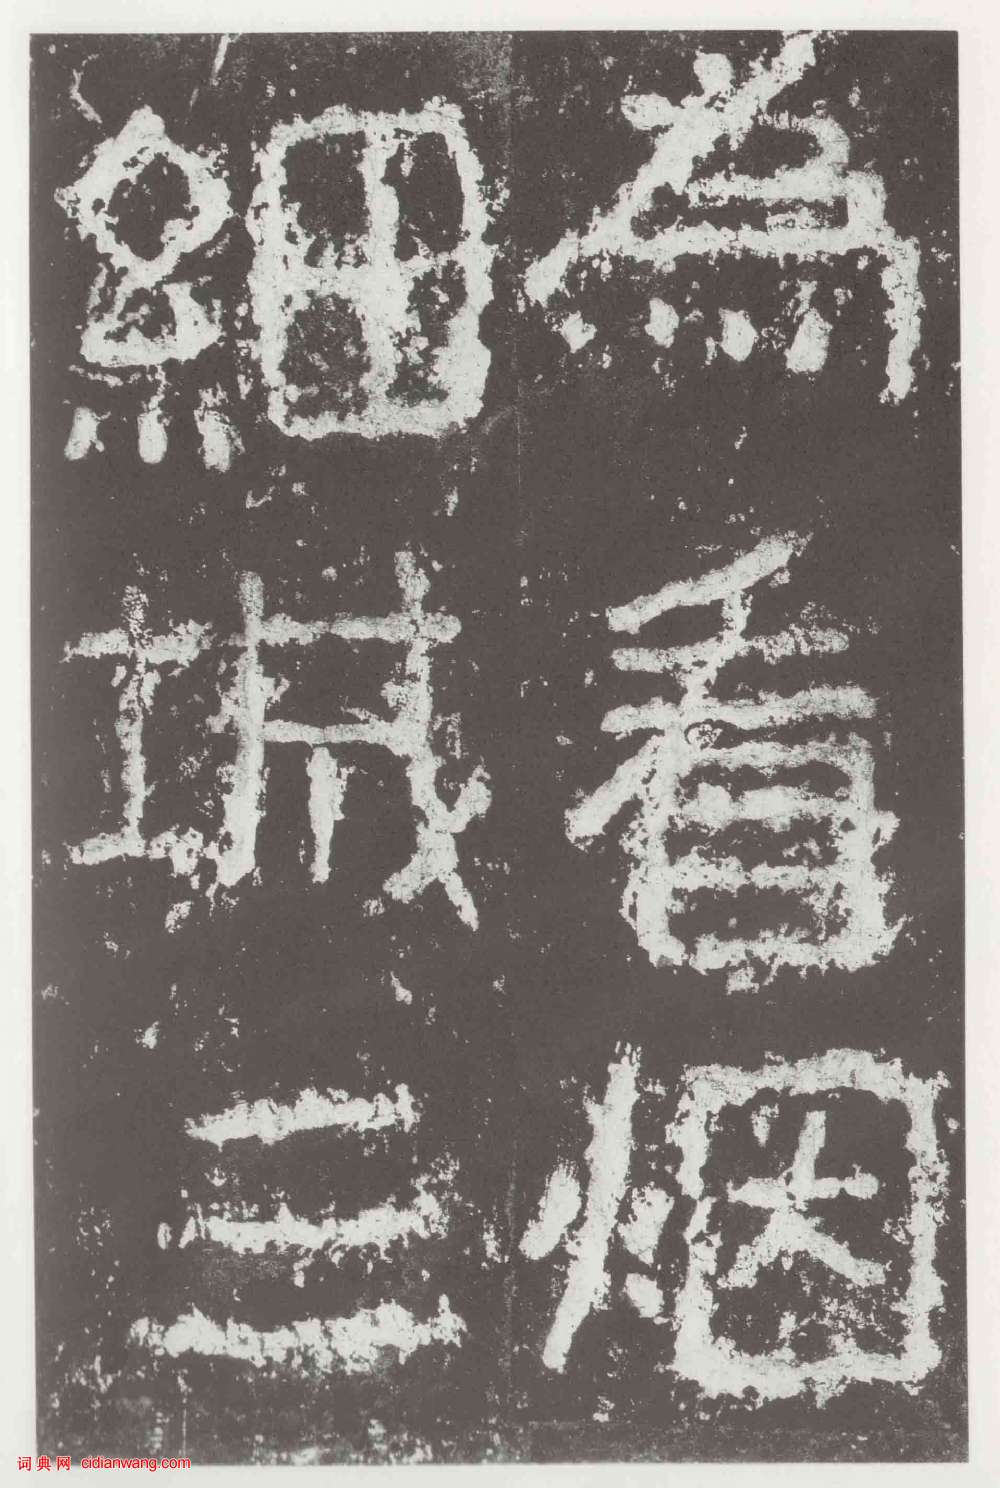 為看烟
細城三
词典网 cidianwang.com